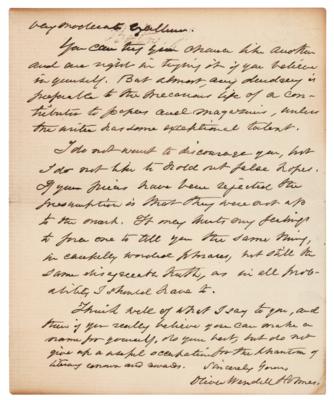 very moderate excellence.
You can try your chance like another
and are right in trying it if you believe
in yourself. But almost any drudgery is
preferable to the precarious life of a con-
tributor to papers and magazines, unless
the writer has some exceptional talent.
I do not want to discourage you, but
I do not like to hold out false hopes.
If your pieces have been rejected the
presumption is that they were not up
to the mark. It may hurt my feelings
to force me to tell you the same thing,
in carefully worded phrases, but still the
same disagreeable truth, as in all prob-
ability I should have to.
Think well of what I say to you, and
then if you really believe you can make a
name for yourself, do your best, but do not
give up a useful occupation for the phantom of
literary renown and awards.
Sincerely Yours,
Oliver Wendell Holmes.